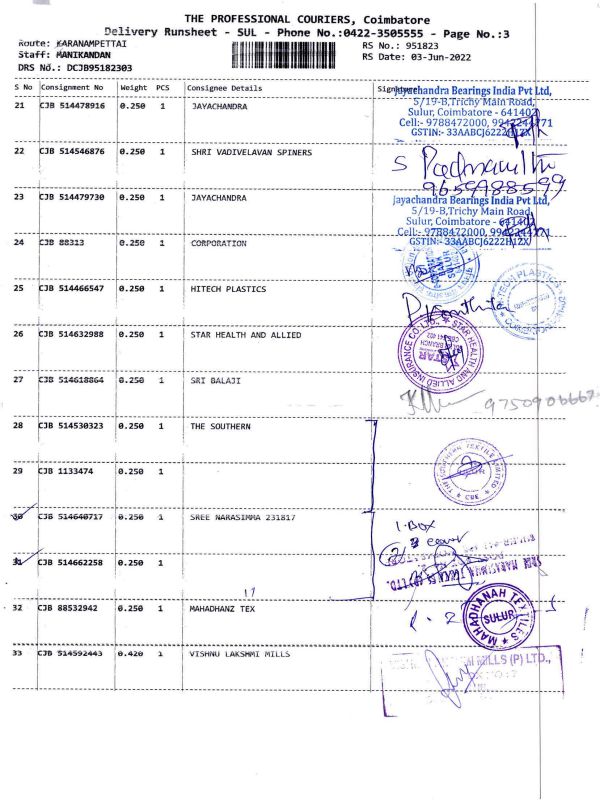 THE PROFESSIONAL COURIERS, Coimbatore
Delivery Runsheet - SUL - Phone No.:0422-3505555 - Page No.:3
Route: KARANAMPETTAI
RS No.: 951823
Staff: MANIKANDAN
RS Date: 03-Jun-2022
DRS No.: DCJB95182303
S No Consignment No Weight PCS Consignee Details Signature
21 CJB 514478916 0.250 1 JAYACHANDRA
Jayachandra Bearings India Pvt Ltd,
5/19-B,Trichy Main Road,
Sulur, Coimbatore - 641402
Cell:- 9788472000, 9942244771
GSTIN:- 33AABCJ6222H1ZX
22 CJB 514546876 0.250 1 SHRI VADIVELAVAN SPINERS
S Padmavathi
9659988599
23 CJB 514479730 0.250 1 JAYACHANDRA
Jayachandra Bearings India Pvt Ltd,
5/19-B,Trichy Main Road,
Sulur, Coimbatore - 641402
Cell:- 9788472000, 9942244771
GSTIN:- 33AABCJ6222H1ZX
24 CJB 88313 0.250 1 CORPORATION
SULUR
25 CJB 514466547 0.250 1 HITECH PLASTICS
HITECH PLASTIC
26 CJB 514632988 0.250 1 STAR HEALTH AND ALLIED
STAR HEALTH AND ALLIED INSURANCE CO. LTD.
STAR
27 CJB 514618864 0.250 1 SRI BALAJI
9750906667
28 CJB 514530323 0.250 1 THE SOUTHERN
THE SOUTHERN TEXTILE LIMITED
CBE
29 CJB 1133474 0.250 1
30 CJB 514640717 0.250 1 SREE NARASIMMA 231817
1. Box
2 cover
31 CJB 514662258 0.250 1
17
32 CJB 88532942 0.250 1 MAHADHANZ TEX
MAHADHANAH TEXTILES
SULUR
33 CJB 514592443 0.420 1 VISHNU LAKSHMI MILLS
MILLS (P) LTD.,